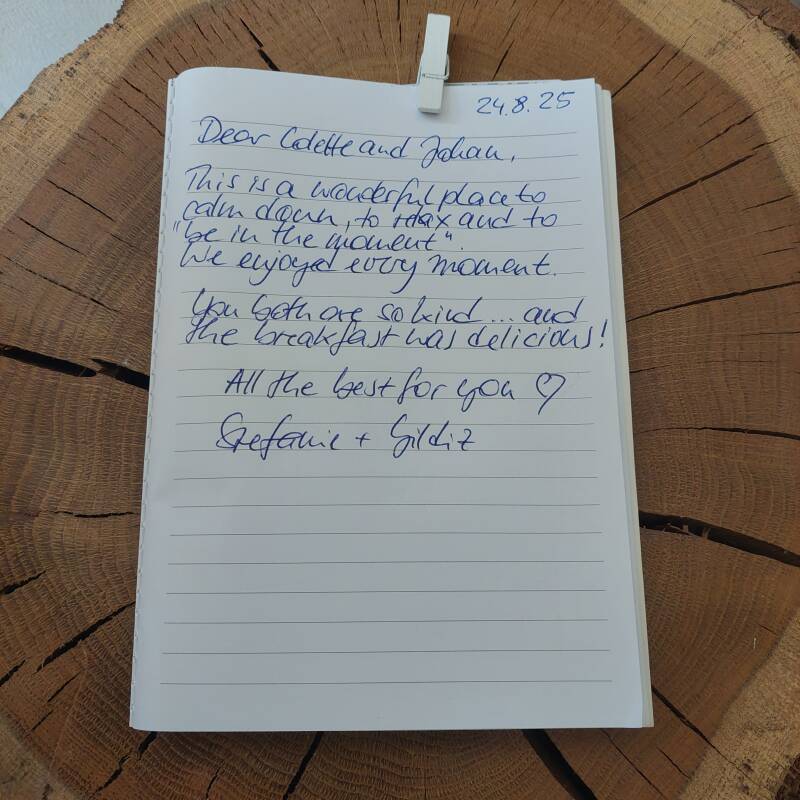 24.8.25
Dear Colette and Johan,
This is a wonderful place to
calm down, to relax and to
"be in the moment".
We enjoyed every moment.
You both are so kind... and
the breakfast was delicious!
All the best for you ♡
Stefanie +